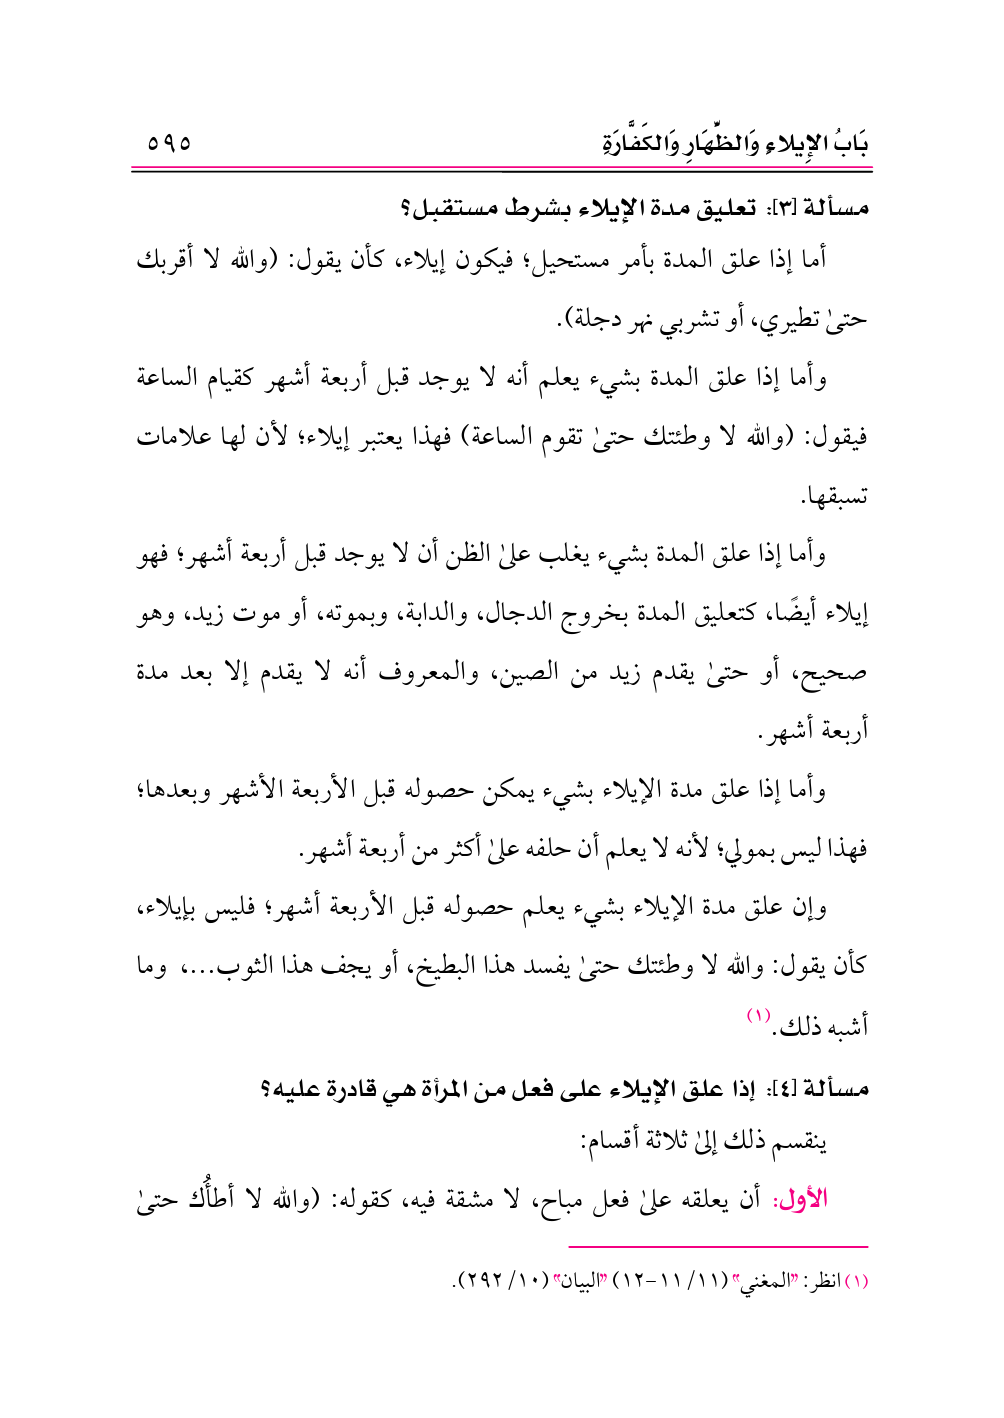 بَابُ الإِيلاءِ وَالظِّهَارِ وَالكَفَّارَةِ ٥٩٥
مسألة [٣]: تعليق مدة الإيلاء بشرط مستقبل؟
أما إذا علق المدة بأمر مستحيل؛ فيكون إيلاء، كأن يقول: (والله لا أقربك
حتىٰ تطيري، أو تشربي نهر دجلة).
وأما إذا علق المدة بشيء يعلم أنه لا يوجد قبل أربعة أشهر كقيام الساعة
فيقول: (والله لا وطئتك حتىٰ تقوم الساعة) فهذا يعتبر إيلاء؛ لأن لها علامات
تسبقها.
وأما إذا علق المدة بشيء يغلب علىٰ الظن أن لا يوجد قبل أربعة أشهر؛ فهو
إيلاء أيضًا، كتعليق المدة بخروج الدجال، والدابة، وبموته، أو موت زيد، وهو
صحيح، أو حتىٰ يقدم زيد من الصين، والمعروف أنه لا يقدم إلا بعد مدة
أربعة أشهر.
وأما إذا علق مدة الإيلاء بشيء يمكن حصوله قبل الأربعة الأشهر وبعدها؛
فهذا ليس بمولي؛ لأنه لا يعلم أن حلفه علىٰ أكثر من أربعة أشهر.
وإن علق مدة الإيلاء بشيء يعلم حصوله قبل الأربعة أشهر؛ فليس بإيلاء،
كأن يقول: والله لا وطئتك حتىٰ يفسد هذا البطيخ، أو يجف هذا الثوب...، وما
أشبه ذلك.(١)
مسألة [٤]: إذا علق الإيلاء على فعل من المرأة هي قادرة عليه؟
ينقسم ذلك إلىٰ ثلاثة أقسام:
الأول: أن يعلقه علىٰ فعل مباح، لا مشقة فيه، كقوله: (والله لا أطأُك حتىٰ
(١) انظر: "المغني" (١١/ ١١-١٢) "البيان" (١٠/ ٢٩٢).